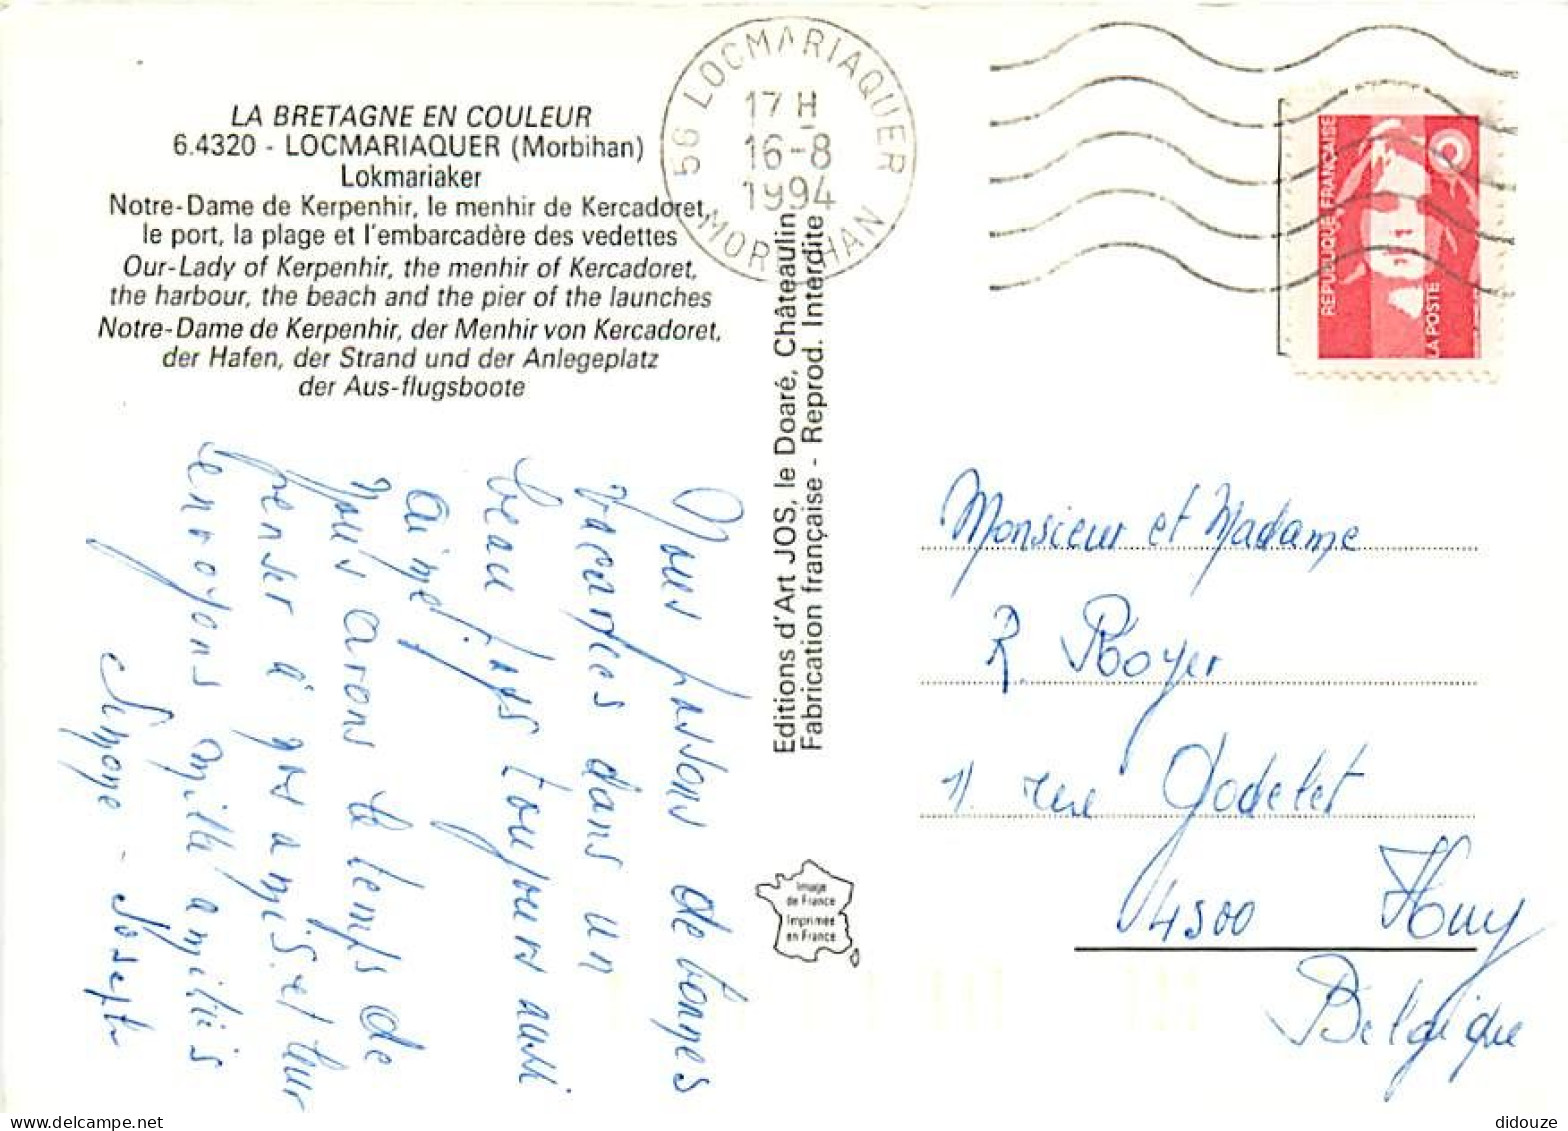 LA BRETAGNE EN COULEUR
6.4320 - LOCMARIAQUER (Morbihan)
Lokmariaker
Notre-Dame de Kerpenhir, le menhir de Kercadoret,
le port, la plage et l'embarcadère des vedettes
Our-Lady of Kerpenhir, the menhir of Kercadoret,
the harbour, the beach and the pier of the launches
Notre-Dame de Kerpenhir, der Menhir von Kercadoret,
der Hafen, der Strand und der Anlegeplatz
der Aus-flugsboote
56 LOCMARIAQUER
17 H
16-8
1994
MORBIHAN
REPUBLIQUE FRANÇAISE
LA POSTE
Nous passons de bonnes
vacances dans un
beau pays toujours aussi
aimé.
Nous avons le temps de
penser à nos amis et leur
envoyons mille amitiés
Simone - Joseph
Editions d'Art JOS, le Doaré, Châteaulin
Fabrication française - Reprod. Interdite
Image
de France
Imprimée
en France
Monsieur et Madame
R. Royer
11 rue Godelet
4500 Huy
Belgique
didouze